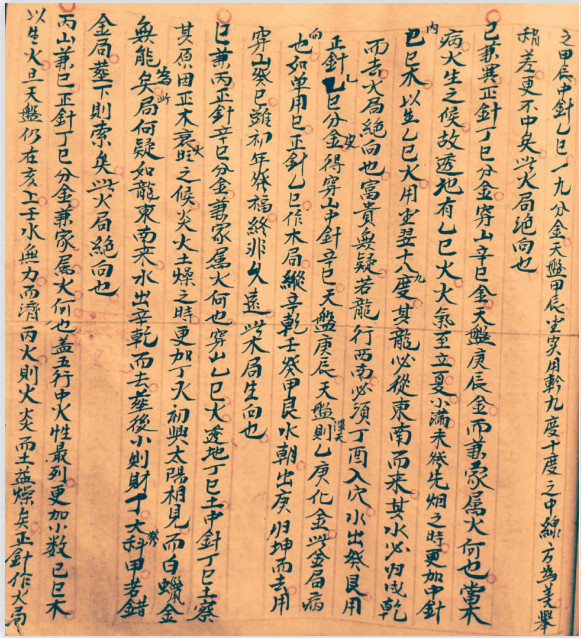 之甲辰中針乙巳一九分金天盤甲辰坐实用軫九度十度之中線方為美舉
稍差更不中矣此火局絕向也
巳兼巽正針丁巳分金穿山辛巳金天盤庚辰金而兼家属火何也當木
病火生之候故透地有乙巳火火氣至立夏小滿未然先烟之時更加中針
內巳巳木以生乙巳火用坐翌十八九度其龍必從東南而來其水必归戌乾
而去火局絕向也富貴無疑若龍行西南必須丁酉入穴水出癸艮用
正針乙巳分金得穿山中針辛巳天盤庚辰天盤則乙庚化金此金局病
向也如单用巳正針乙巳作木局縱辛乾壬癸甲艮水朝出庚归坤而去用
穿山癸巳雖初年發福終非久遠此木局生向也
巳兼丙正針辛巳分金兼家属火何也穿山乙巳火透地丁巳土中針丁巳土察
其原因正木衰火旺之候炎火土燥之時更加丁火初興太陽相見而白蠟金
無能為所矣局何疑如龍東南来水出辛乾而去塟後小則財丁大發科甲若錯
金局塟下則索矣此火局絕向也
丙山兼巳正針丁巳分金兼家属火何也盖五行中火性最烈更加小数巳巳木
以生火旦天盤仍在亥上壬水無力而濟丙火則火炎而土益燥矣正針作火局